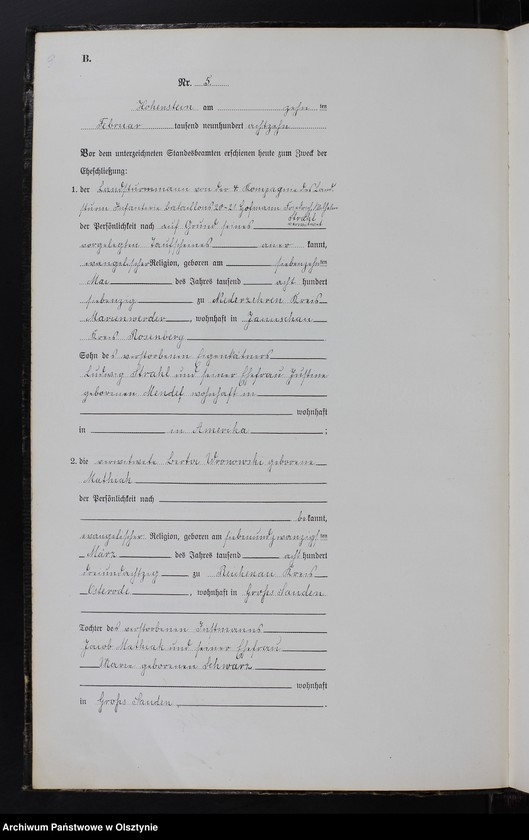 B.
Nr. 5.
Hohenstein am zehn ten
Februar tausend neunhundert achtzehn
Vor dem unterzeichneten Standesbeamten erschienen heute zum Zweck der
Eheschließung:
1. der Landsturmmann von der 4 Kompagnie des Land
sturm Infanterie Bataillons Friedrich Wilhelm
Strahl
der Persönlichkeit nach auf Grund seines
vorgelegten Taufscheines aner kannt,
evangelischer Religion, geboren am siebenzehn ten
Mai des Jahres tausend acht hundert
siebenzig zu Niederzehren Kreis
Marienwerder, wohnhaft in
Kreis Rosenberg
Sohn des verstorbenen Eigentümers
Ludwig Strahl und seiner Ehefrau Justine
geborenen wohnhaft in
wohnhaft
in in Amerika ;
2. die verwitwete Wronowski geborene
Mathiak
der Persönlichkeit nach
bekannt,
evangelischer Religion, geboren am siebenundzwanzigsten
März des Jahres tausend acht hundert
dreiundachtzig zu Reichenau Kreis
Osterode, wohnhaft in Groß
Tochter des verstorbenen Instmanns
Jacob Mathiak und seiner Ehefrau
Marie geborenen Schwarz
wohnhaft
in Groß
Archiwum Państwowe w Olsztynie